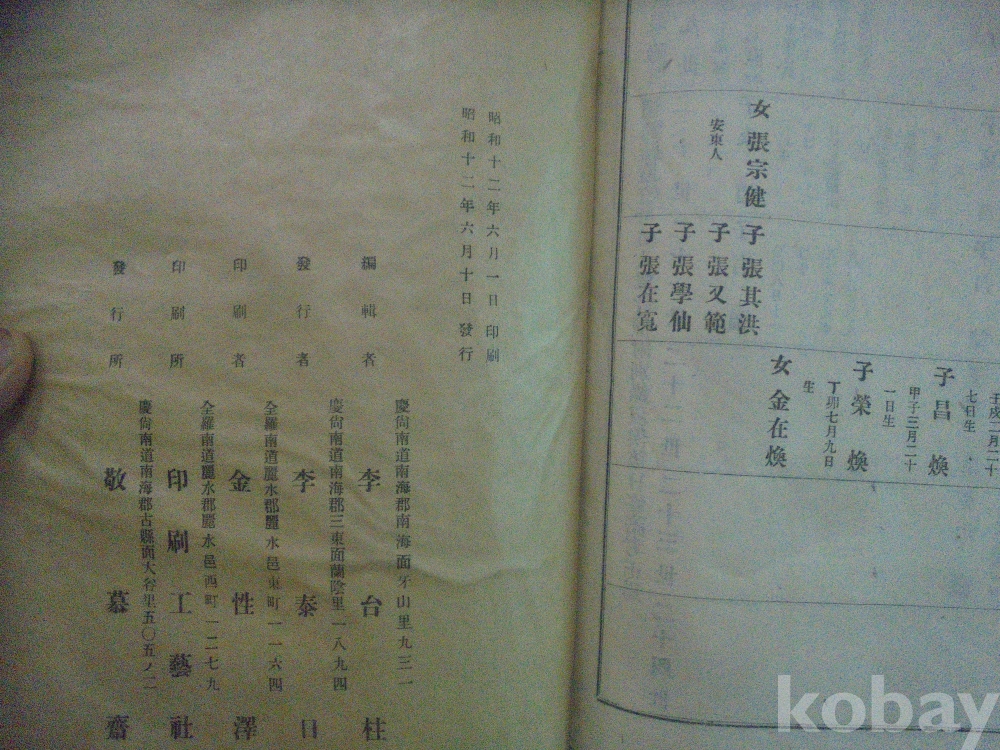 女 張宗健
安東人
子 張其洪
子 張又範
子 張學仙
子 張在寬
壬戌二月二十
七日生
子 昌煥
甲子三月二十
一日生
子 榮煥
丁卯七月九日
生
女 金在煥
昭和十二年六月一日 印刷
昭和十二年六月十日 發行
慶尙南道南海郡南海面牙山里九三一
編輯者 李台柱
慶尙南道南海郡三東面蘭陰里一八九四
發行者 李泰日
全羅南道麗水郡麗水邑東町一一六四
印刷者 金性澤
全羅南道麗水郡麗水邑西町一二七九
印刷所 印刷工藝社
慶尙南道南海郡古縣面大谷里五〇五ノ二
發行所 敬慕齋
kobay